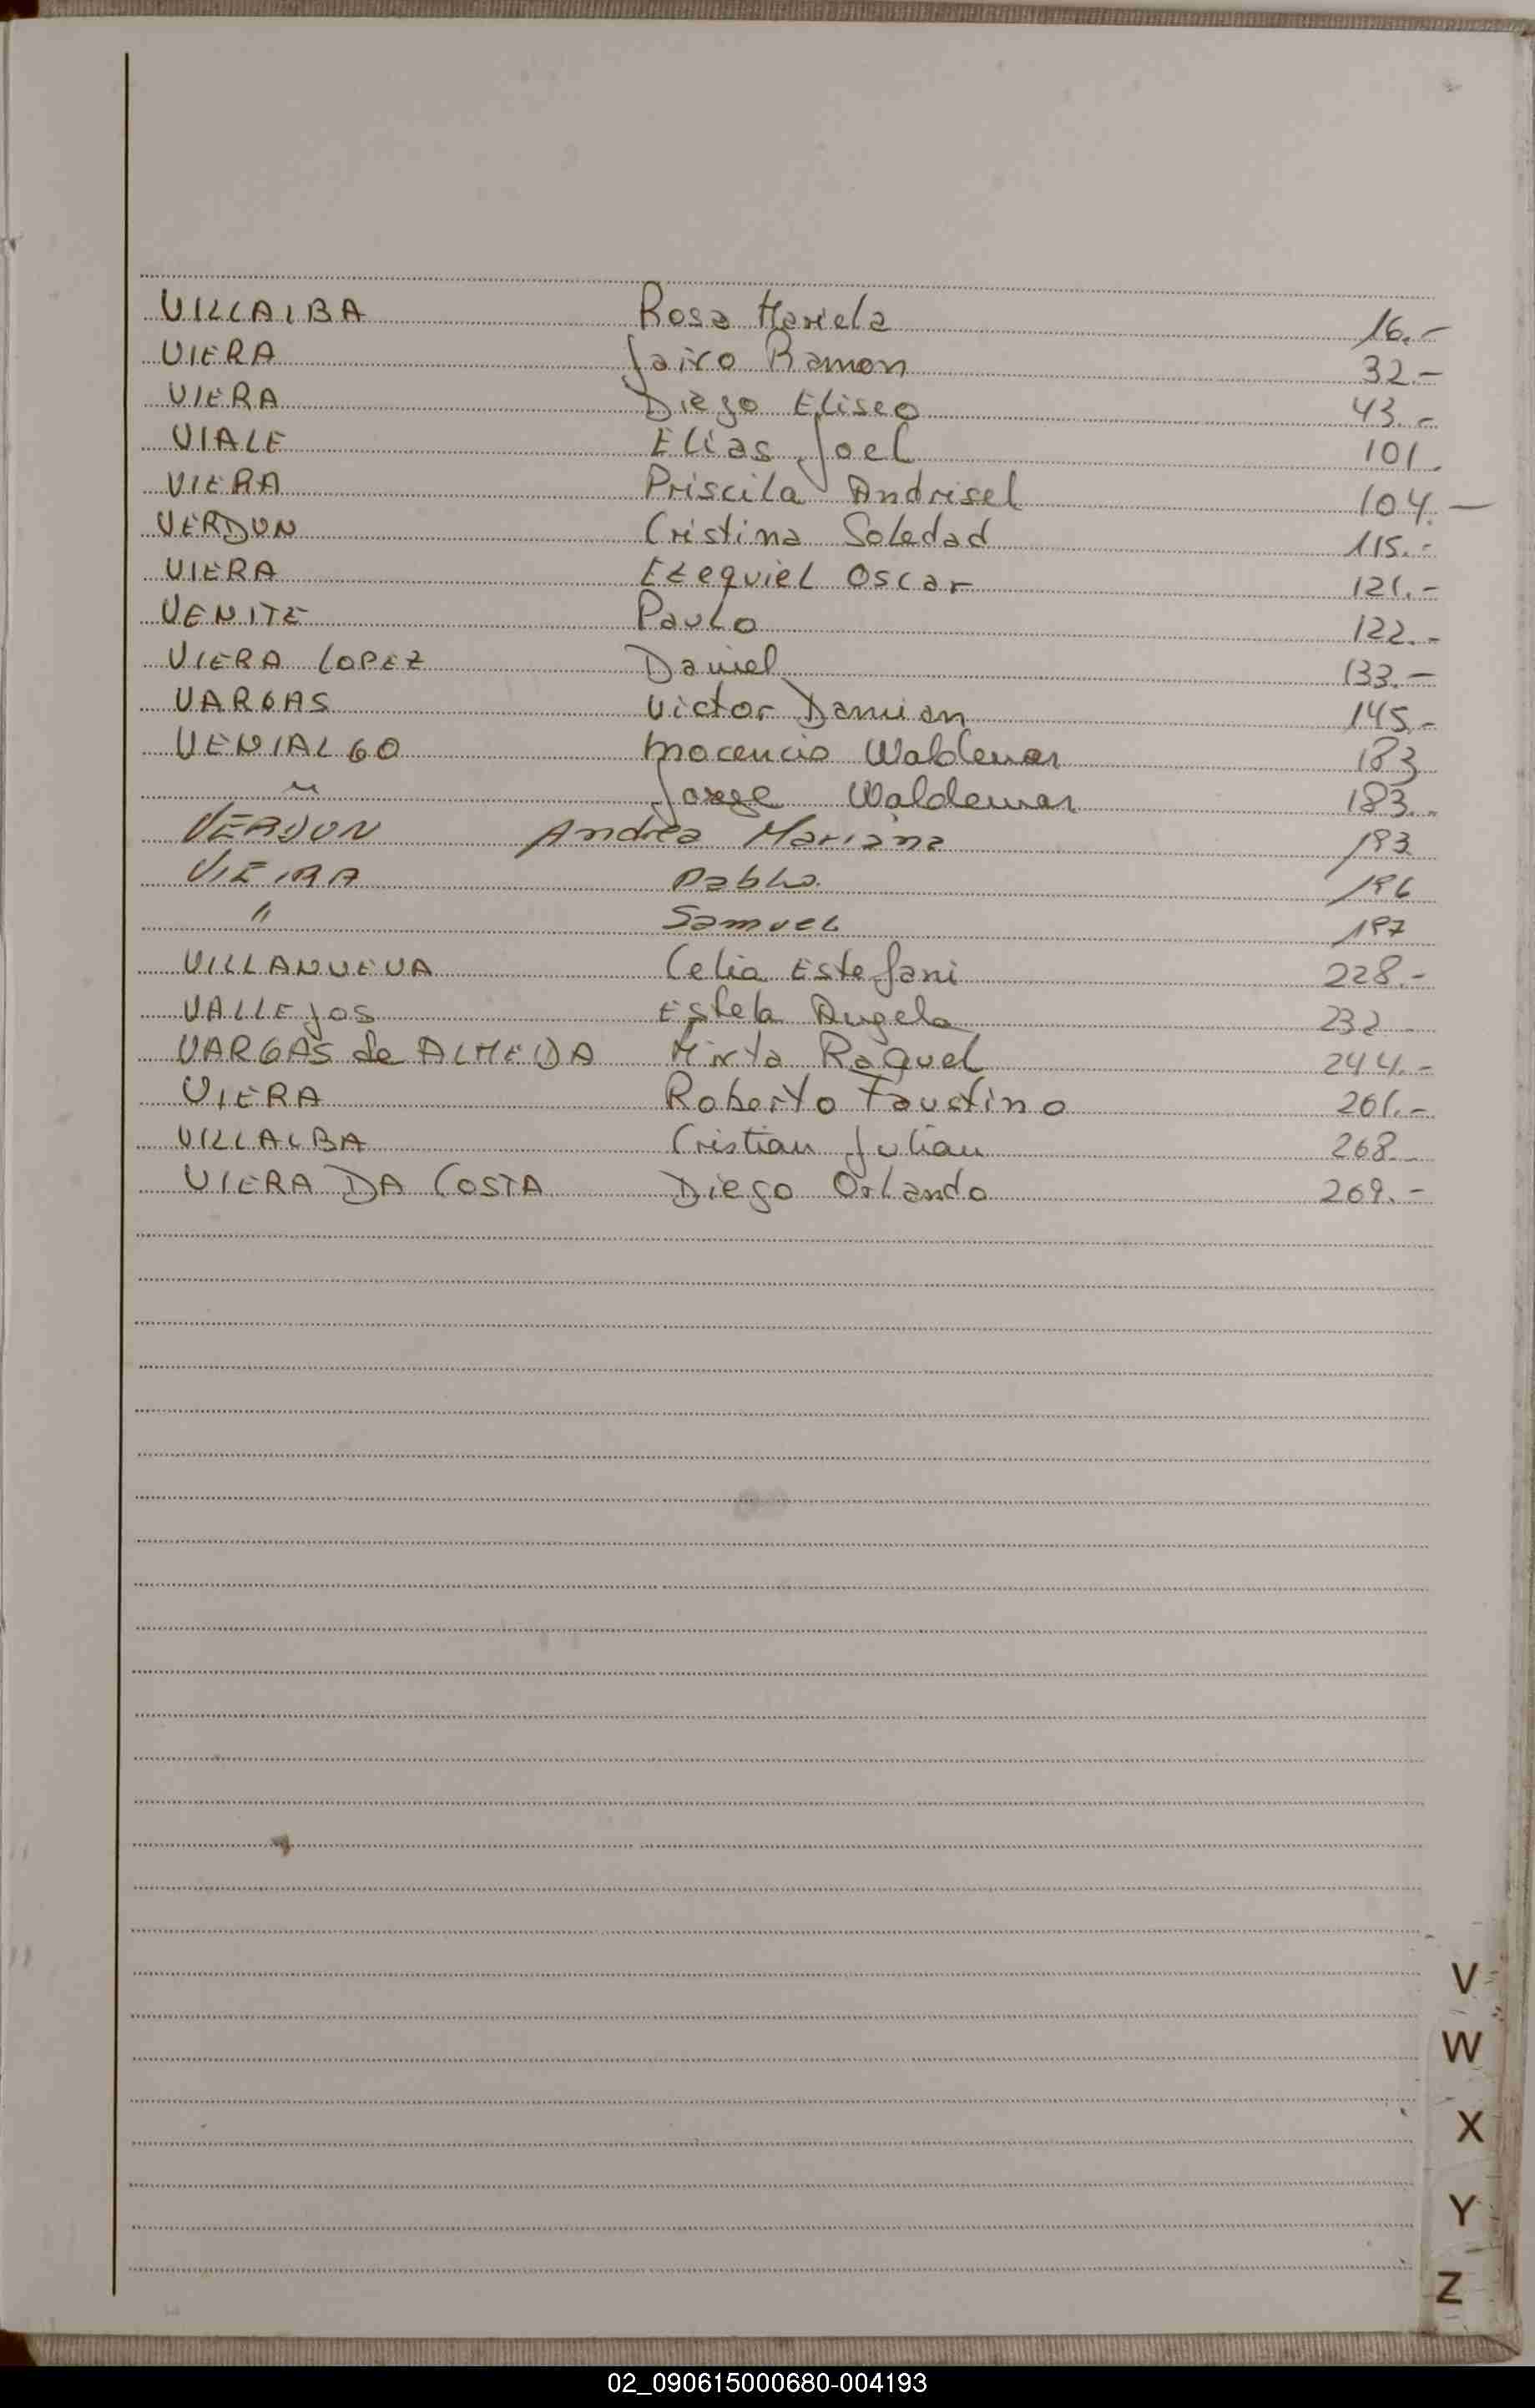 VILLALBA Rosa Mariela 16.-
VIERA Jairo Ramon 32.-
VIERA Diego Eliseo 43.-
VIALE Elias Joel 101.
VIERA Priscila Andrisel 104.-
VERDUN Cristina Soledad 115.-
VIERA Ezequiel Oscar 121.-
VENITE Paulo 122.-
VIERA LOPEZ Daniel 133.-
VARGAS Victor Damian 145.-
VENIALGO Inocencio Waldemar 183
" Jorge Waldemar 183..
VERDUN Andrea Mariana 193
VIEIRA Pablo. 196
" Samuel 197
VILLANUEVA Celia Estefani 228.-
VALLEJOS Estela Angela 232
VARGAS de ALMEIDA Mirta Raquel 244.-
VIERA Roberto Faustino 261.-
VILLALBA Cristian Julian 268
VIERA DA COSTA Diego Orlando 269.-
V
W
X
Y
Z
02_090615000680-004193